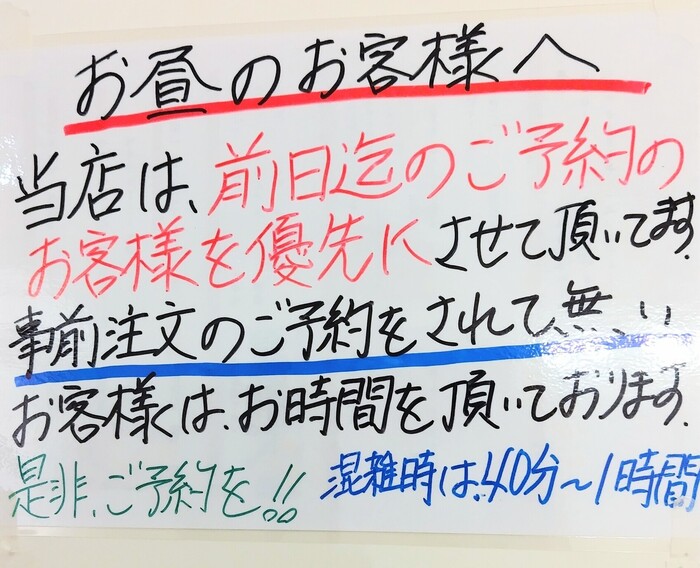 お昼のお客様へ
当店は、前日迄のご予約の
お客様を優先にさせて頂いてます.
事前注文のご予約をされて無い
お客様は、お時間を頂いております.
是非、ご予約を!! 混雑時は、40分～1時間